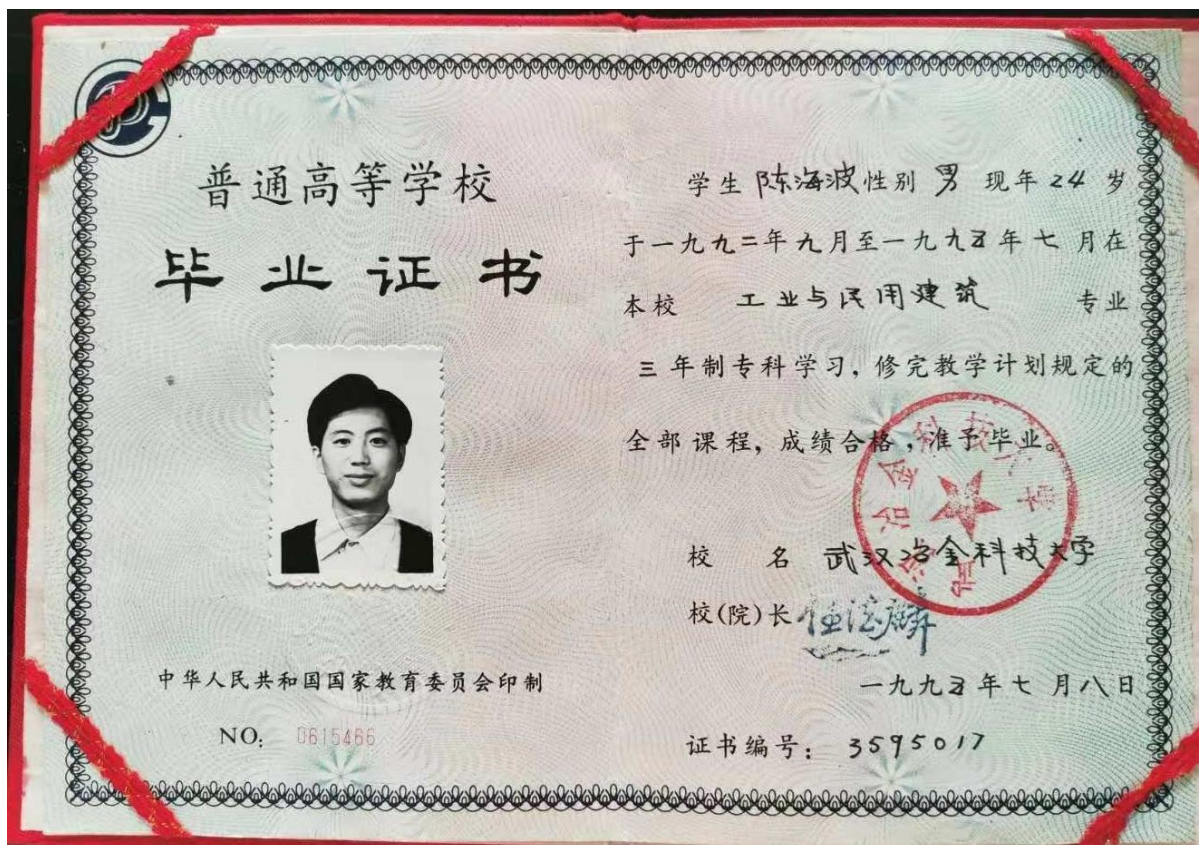 普通高等学校
毕业证书
中华人民共和国国家教育委员会印制
NO: 0615466
学生 陈海波 性别 男 现年 24 岁
于一九九二年九月至一九九五年七月在
本校 工业与民用建筑 专业
三年制专科学习，修完教学计划规定的
全部课程，成绩合格，准予毕业。
校 名 武汉冶金科技大学
校(院)长
一九九五年七月八日
证书编号: 3595017
武汉冶金科技大学